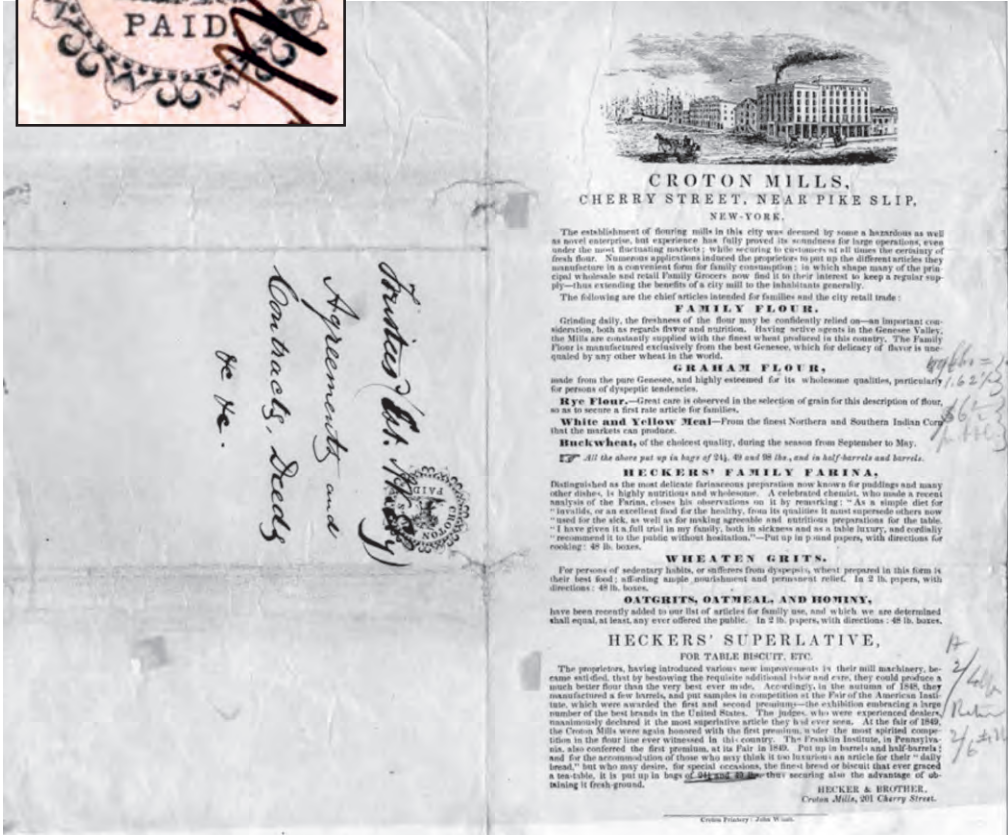 PAID
CROTON MILLS,
CHERRY STREET, NEAR PIKE SLIP,
NEW-YORK.
The establishment of flouring mills in this city was deemed by some a hazardous as well
as novel enterprise, but experience has fully proved its soundness for large operations, even
under the most fluctuating markets; while securing to customers at all times the certainty of
fresh flour. Numerous applications induced the proprietors to put up the different articles they
manufacture in a convenient form for family consumption; in which shape many of the prin-
cipal wholesale and retail Family Grocers now find it to their interest to keep a regular sup-
ply—thus extending the benefits of a city mill to the inhabitants generally.
The following are the chief articles intended for families and the city retail trade:
FAMILY FLOUR.
Grinding daily, the freshness of the flour may be confidently relied on—an important con-
sideration, both as regards flavor and nutrition. Having active agents in the Genesee Valley,
the Mills are constantly supplied with the finest wheat produced in this country. The Family
Flour is manufactured exclusively from the best Genesee, which for delicacy of flavor is une-
qualed by any other wheat in the world.
GRAHAM FLOUR,
made from the pure Genesee, and highly esteemed for its wholesome qualities, particularly
for persons of dyspeptic tendencies.
Rye Flour.—Great care is observed in the selection of grain for this description of flour,
so as to secure a first rate article for families.
White and Yellow Meal—From the finest Northern and Southern Indian Corn
that the markets can produce.
Buckwheat, of the choicest quality, during the season from September to May.
☞ All the above put up in bags of 24½, 49 and 98 lbs., and in half-barrels and barrels.
HECKERS' FAMILY FARINA,
Distinguished as the most delicate farinaceous preparation now known for puddings and many
other dishes, is highly nutritious and wholesome. A celebrated chemist, who made a recent
analysis of the Farina, closes his observations on it by remarking: "As a simple diet for
"invalids, or an excellent food for the healthy, from its qualities it must supersede others now
"used for the sick, as well as for making agreeable and nutritious preparations for the table.
"I have given it a full trial in my family, both in sickness and as a table luxury, and cordially
"recommend it to the public without hesitation."—Put up in pound papers, with directions for
cooking: 48 lb. boxes.
WHEATEN GRITS.
For persons of sedentary habits, or sufferers from dyspepsia, wheat prepared in this form is
their best food; affording ample nourishment and permanent relief. In 2 lb. papers, with
directions: 48 lb. boxes.
OATGRITS, OATMEAL, AND HOMINY,
have been recently added to our list of articles for family use, and which we are determined
shall equal, at least, any ever offered the public. In 2 lb. papers, with directions: 48 lb. boxes.
HECKERS' SUPERLATIVE,
FOR TABLE BISCUIT, ETC.
The proprietors, having introduced various new improvements in their mill machinery, be-
came satisfied, that by bestowing the requisite additional labor and care, they could produce a
much better flour than the very best ever made. Accordingly, in the autumn of 1848, they
manufactured a few barrels, and put samples in competition at the Fair of the American Insti-
tute, which were awarded the first and second premiums—the exhibition embracing a large
number of the best brands in the United States. The judges, who were experienced dealers,
unanimously declared it the most superlative article they had ever seen. At the fair of 1849,
the Croton Mills were again honored with the first premium, under the most spirited compe-
tition in the flour line ever witnessed in this country. The Franklin Institute, in Pennsylva-
nia, also conferred the first premium, at its Fair in 1849. Put up in barrels and half-barrels;
and for the accommodation of those who may think it too luxurious an article for their "daily
bread," but who may desire, for special occasions, the finest bread or biscuit that ever graced
a tea-table, it is put up in bags of 24½ and 49 lbs. thus securing also the advantage of ob-
taining it fresh-ground.
HECKER & BROTHER,
Croton Mills, 201 Cherry Street.
Croton Printery: John Windt.
Agreements and
Contracts, Deeds
&c &c.
CROTON
PAID